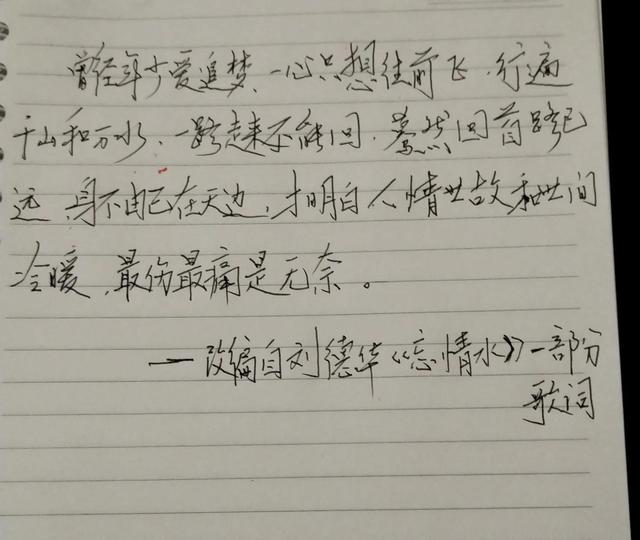 曾经年少爱追梦、一心只想往前飞、行遍
千山和万水、一路走来不能回、蓦然回首路已
远 身不由己在天边,才明白人情世故和世间
冷暖,最伤最痛是无奈。
——改编自刘德华《忘情水》一部份
歌词